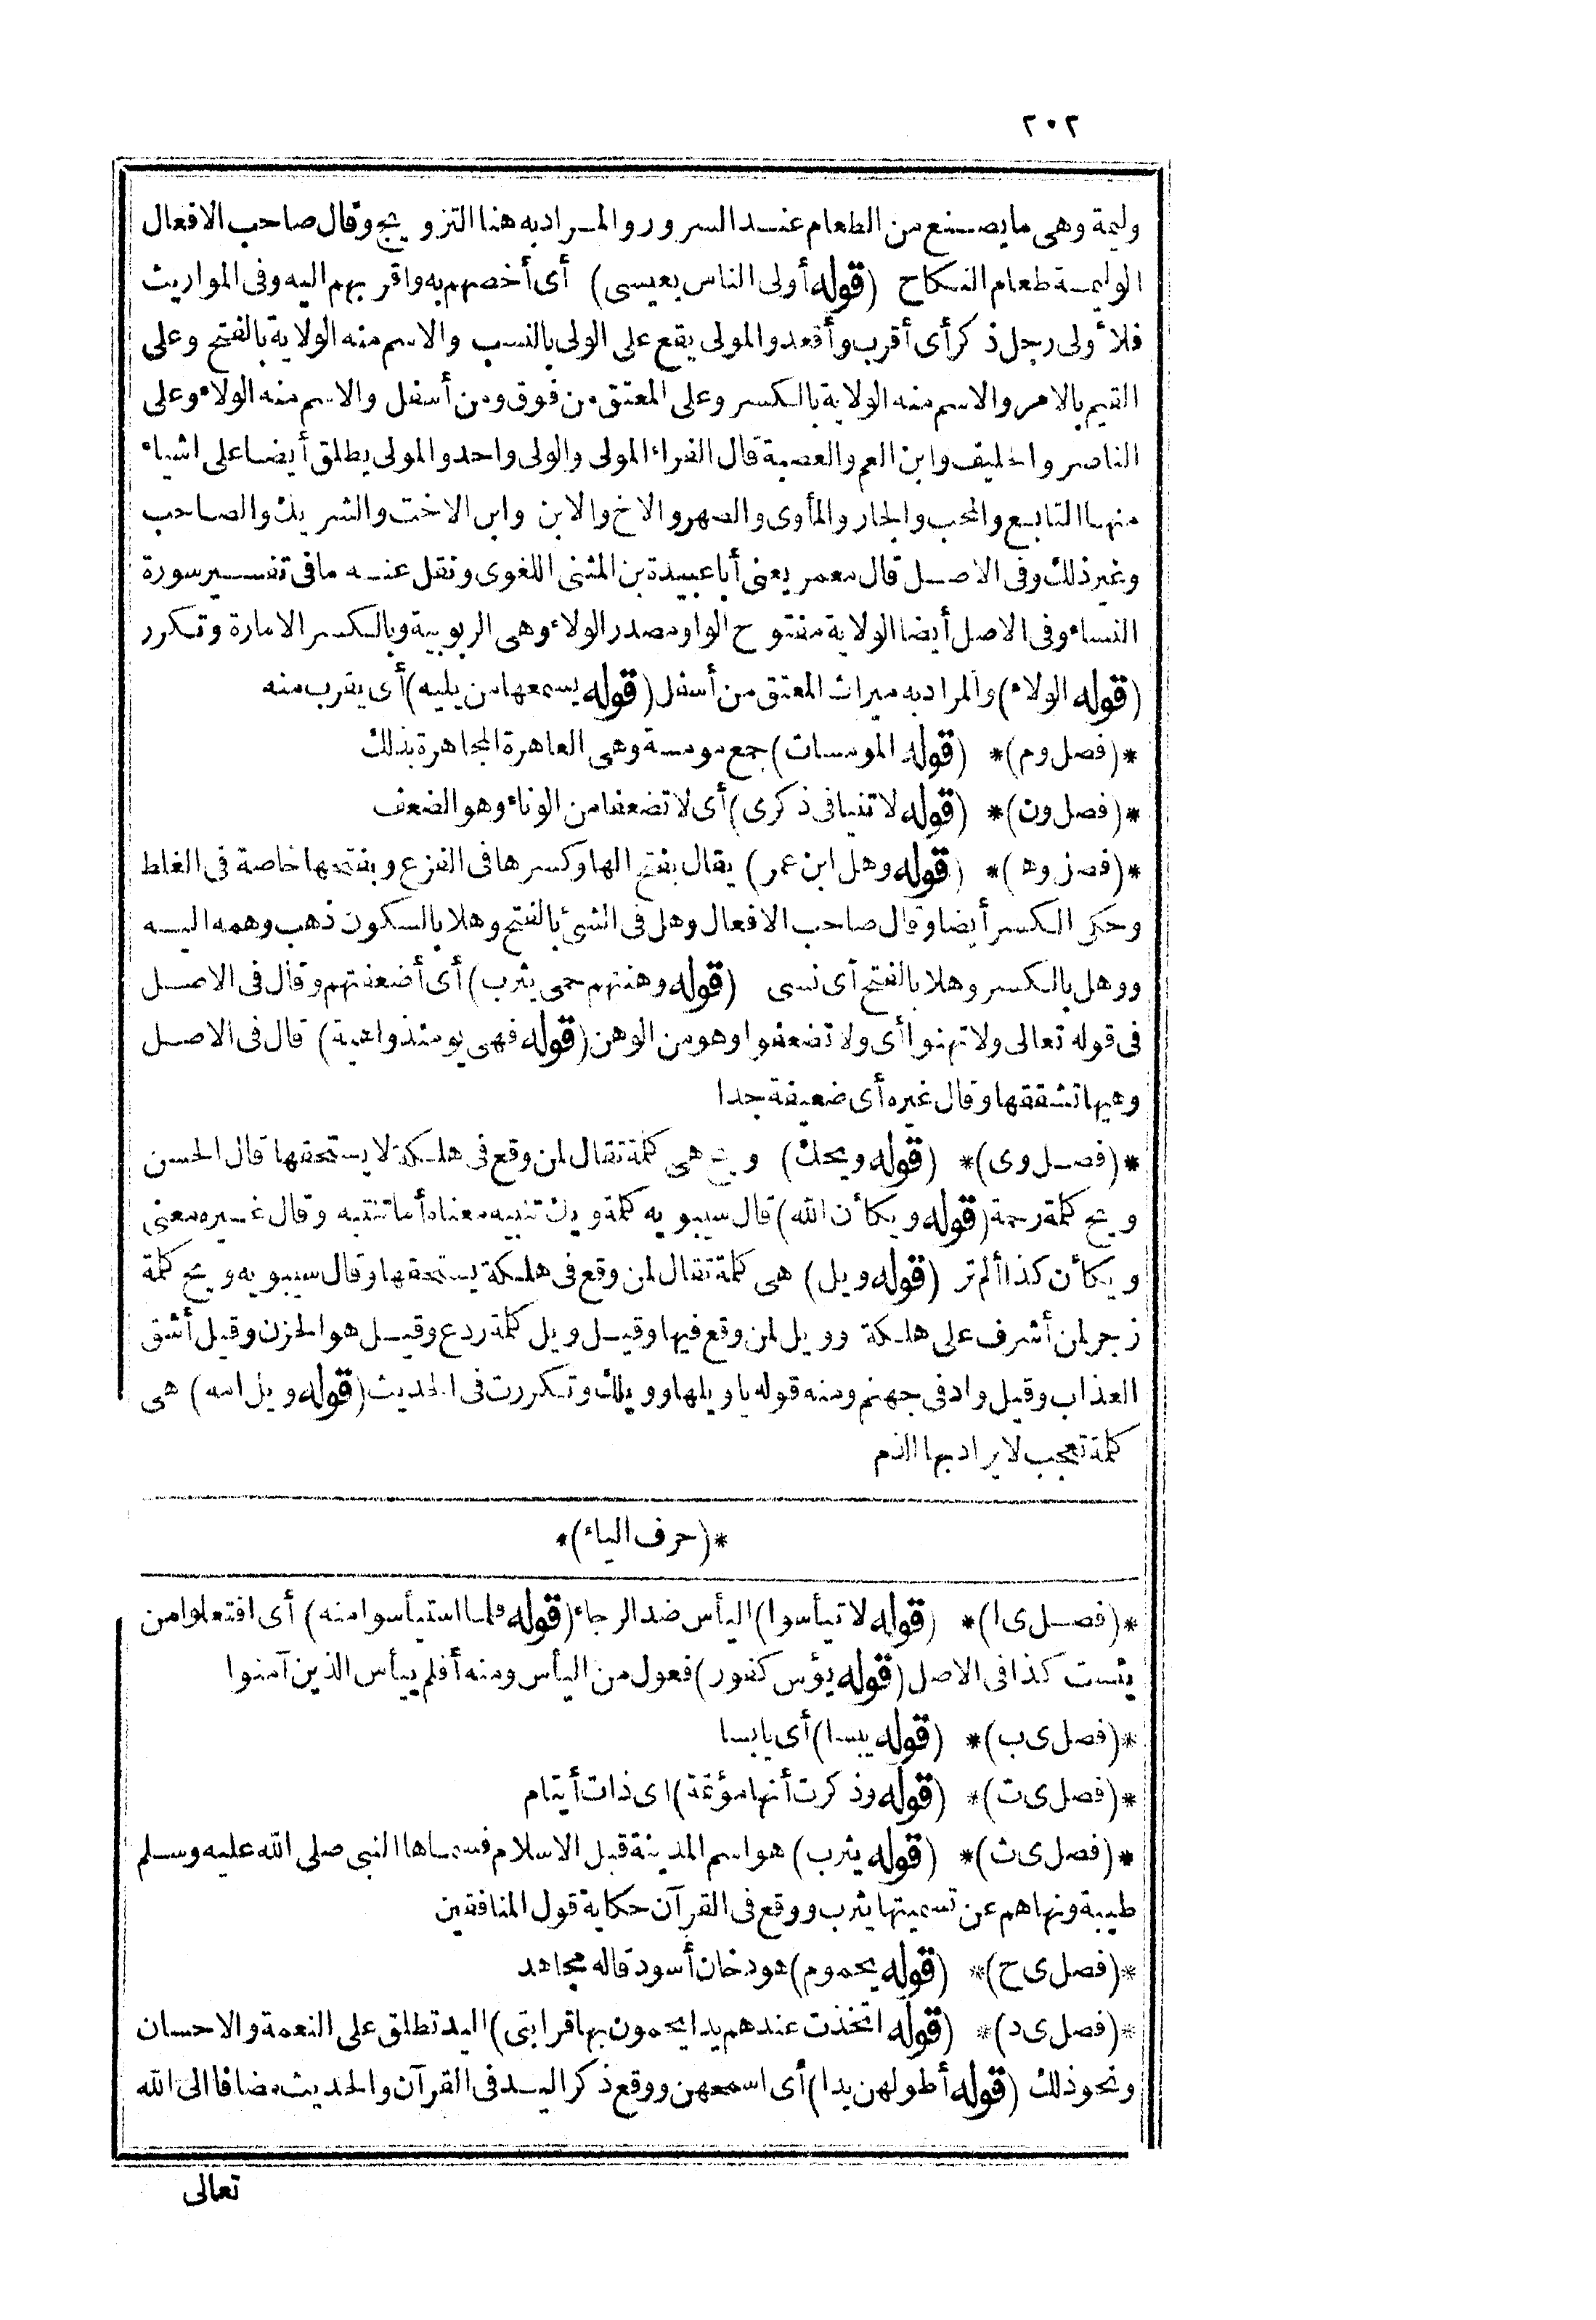 ٢٠٢
وليمة وهى ما يصنع من الطعام عند السرور والمراد به هنا التزويج وقال صاحب الافعال
الوليمة طعام النكاح (قوله أولى الناس بعيسى) أى أخصهم به واقربهم اليه وفى المواريث
فلأولى رجل ذكر أى أقرب وأقعد والمولى يقع على الولى بالنسب والاسم منه الولاية بالفتح وعلى
القيم بالامر والاسم منه الولاية بالكسر وعلى المعتق من فوق ومن أسفل والاسم منه الولاء وعلى
الناصر والحليف وابن العم والعصبة قال الفراء المولى والولى واحد والمولى يطلق أيضا على اشياء
منها التابع والمحب والجار والمأوى والصهر والاخ والابن وابن الاخت والشريك والصاحب
وغير ذلك وفى الاصل قال معمر يعنى أبا عبيدة بن المثنى اللغوى ونقل عنه ما فى تفسير سورة
النساء وفى الاصل أيضا الولاية مفتوح الواو مصدر الولاء وهى الربوبية وبالكسر الامارة وتكرر
(قوله الولاء) والمراد به ميراث المعتق من أسفل (قوله يسمعها من يليه) أى يقرب منه
*(فصل وم)* (قوله المومسات) جمع مومسة وهى العاهرة المجاهرة بذلك
*(فصل ون)* (قوله لا تنيا فى ذكرى) أى لا تضعفا من الوناء وهو الضعف
*(فصل وه)* (قوله وهل ابن عمر) يقال بفتح الها وكسرها فى الفزع وبفتحها خاصة فى الغلط
وحكى الكسر أيضا وقال صاحب الافعال وهل فى الشئ بالفتح وهلا بالسكون ذهب وهمه اليه
ووهل بالكسر وهلا بالفتح أى نسى (قوله وهنتهم حمى يثرب) أى أضعفتهم وقال فى الاصل
فى قوله تعالى ولا تهنوا أى ولا تضعفوا وهو من الوهن (قوله فهى يومئذ واهية) قال فى الاصل
وهيها تشققها وقال غيره أى ضعيفة جدا
*(فصل وى)* (قوله ويحك) ويح هى كلمة تقال لمن وقع فى هلكة لا يستحقها قال الحسن
ويح كلمة رحمة (قوله ويكأن الله) قال سيبويه كلمة ويك تنبيه معناه أما تنتبه وقال غيره معنى
ويكأن كذا ألم تر (قوله ويل) هى كلمة تقال لمن وقع فى هلكة يستحقها وقال سيبويه ويح كلمة
زجر لمن أشرف على هلكة وويل لمن وقع فيها وقيل ويل كلمة ردع وقيل هو الحزن وقيل أشق
العذاب وقيل واد فى جهنم ومنه قوله يا ويلها وويلك وتكررت فى الحديث (قوله ويل امه) هى
كلمة تعجب لا يراد بها الذم
*(حرف الياء)*
*(فصل ى ا)* (قوله لا تيأسوا) اليأس ضد الرجاء (قوله فلما استيأسوا منه) أى افتعلوا من
يئست كذا فى الاصل (قوله يؤس كفور) فعول من اليأس ومنه أفلم ييأس الذين آمنوا
*(فصل ى ب)* (قوله يبسا) أى يابسا
*(فصل ى ت)* (قوله وذكرت أنها مؤتمة) اى ذات أيتام
*(فصل ى ث)* (قوله يثرب) هو اسم المدينة قبل الاسلام فسماها النبى صلى الله عليه وسلم
طيبة ونهاهم عن تسميتها يثرب ووقع فى القرآن حكاية قول المنافقين
*(فصل ى ح)* (قوله يحموم) هو دخان أسود قاله مجاهد
*(فصل ى د)* (قوله اتخذت عندهم يدا يحمون بها قرابتى) اليد تطلق على النعمة والاحسان
ونحو ذلك (قوله أطولهن يدا) أى اسمحهن ووقع ذكر اليد فى القرآن والحديث مضافا الى الله
تعالى